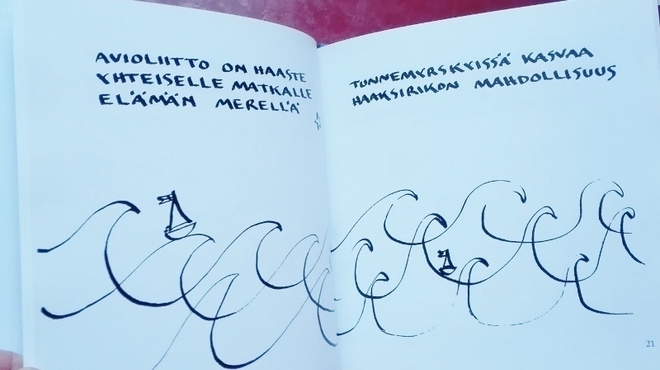 AVIOLIITTO ON HAASTE
YHTEISELLE MATKALLE
ELÄMÄN MERELLÄ
TUNNEMYRSKYISSÄ KASVAA
HAAKSIRIKON MAHDOLLISUUS
21